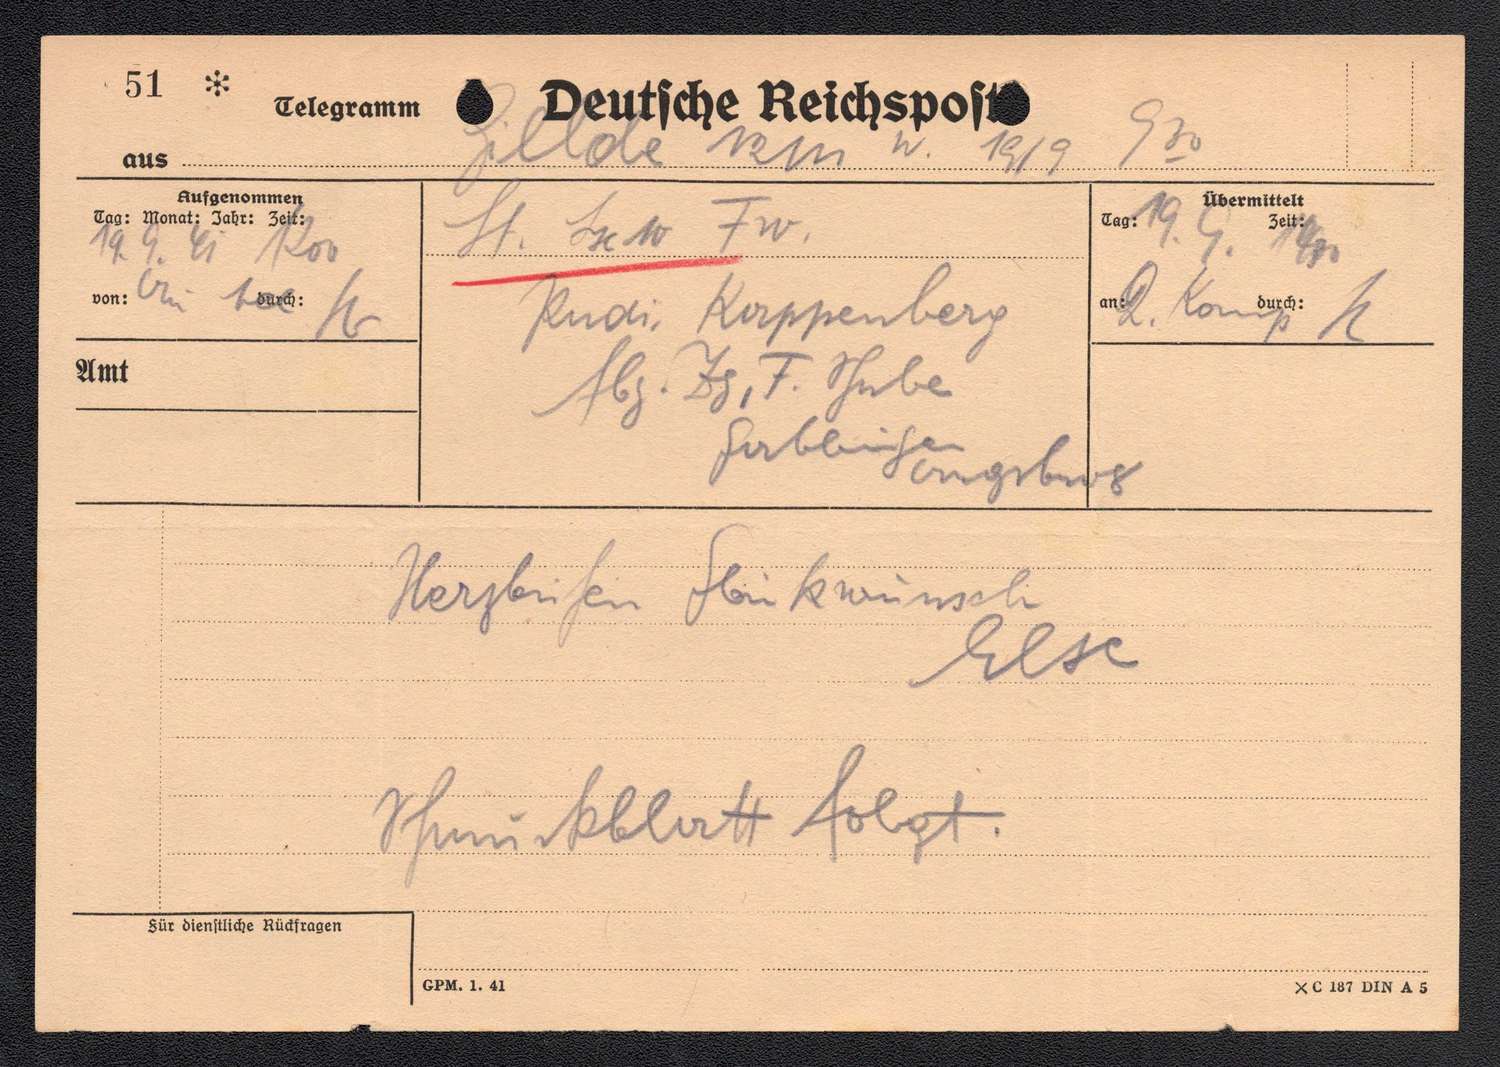 51 * Telegramm Deutsche Reichspost
aus 12 W. 19/9 9 30
Aufgenommen
Tag: Monat: Jahr: Zeit:
19. 9. 41
von: durch:
Amt
Fw.
Rudi Kappenberg
Abg. F. Stube
Gablingen
Augsburg
Übermittelt
Tag: Zeit:
19. 9.
an: durch:
2. Komp
Herzlichen Glückwunsch
Else
Schmuckblatt folgt.
Für dienstliche Rückfragen
GPM. 1. 41
C 187 DIN A 5